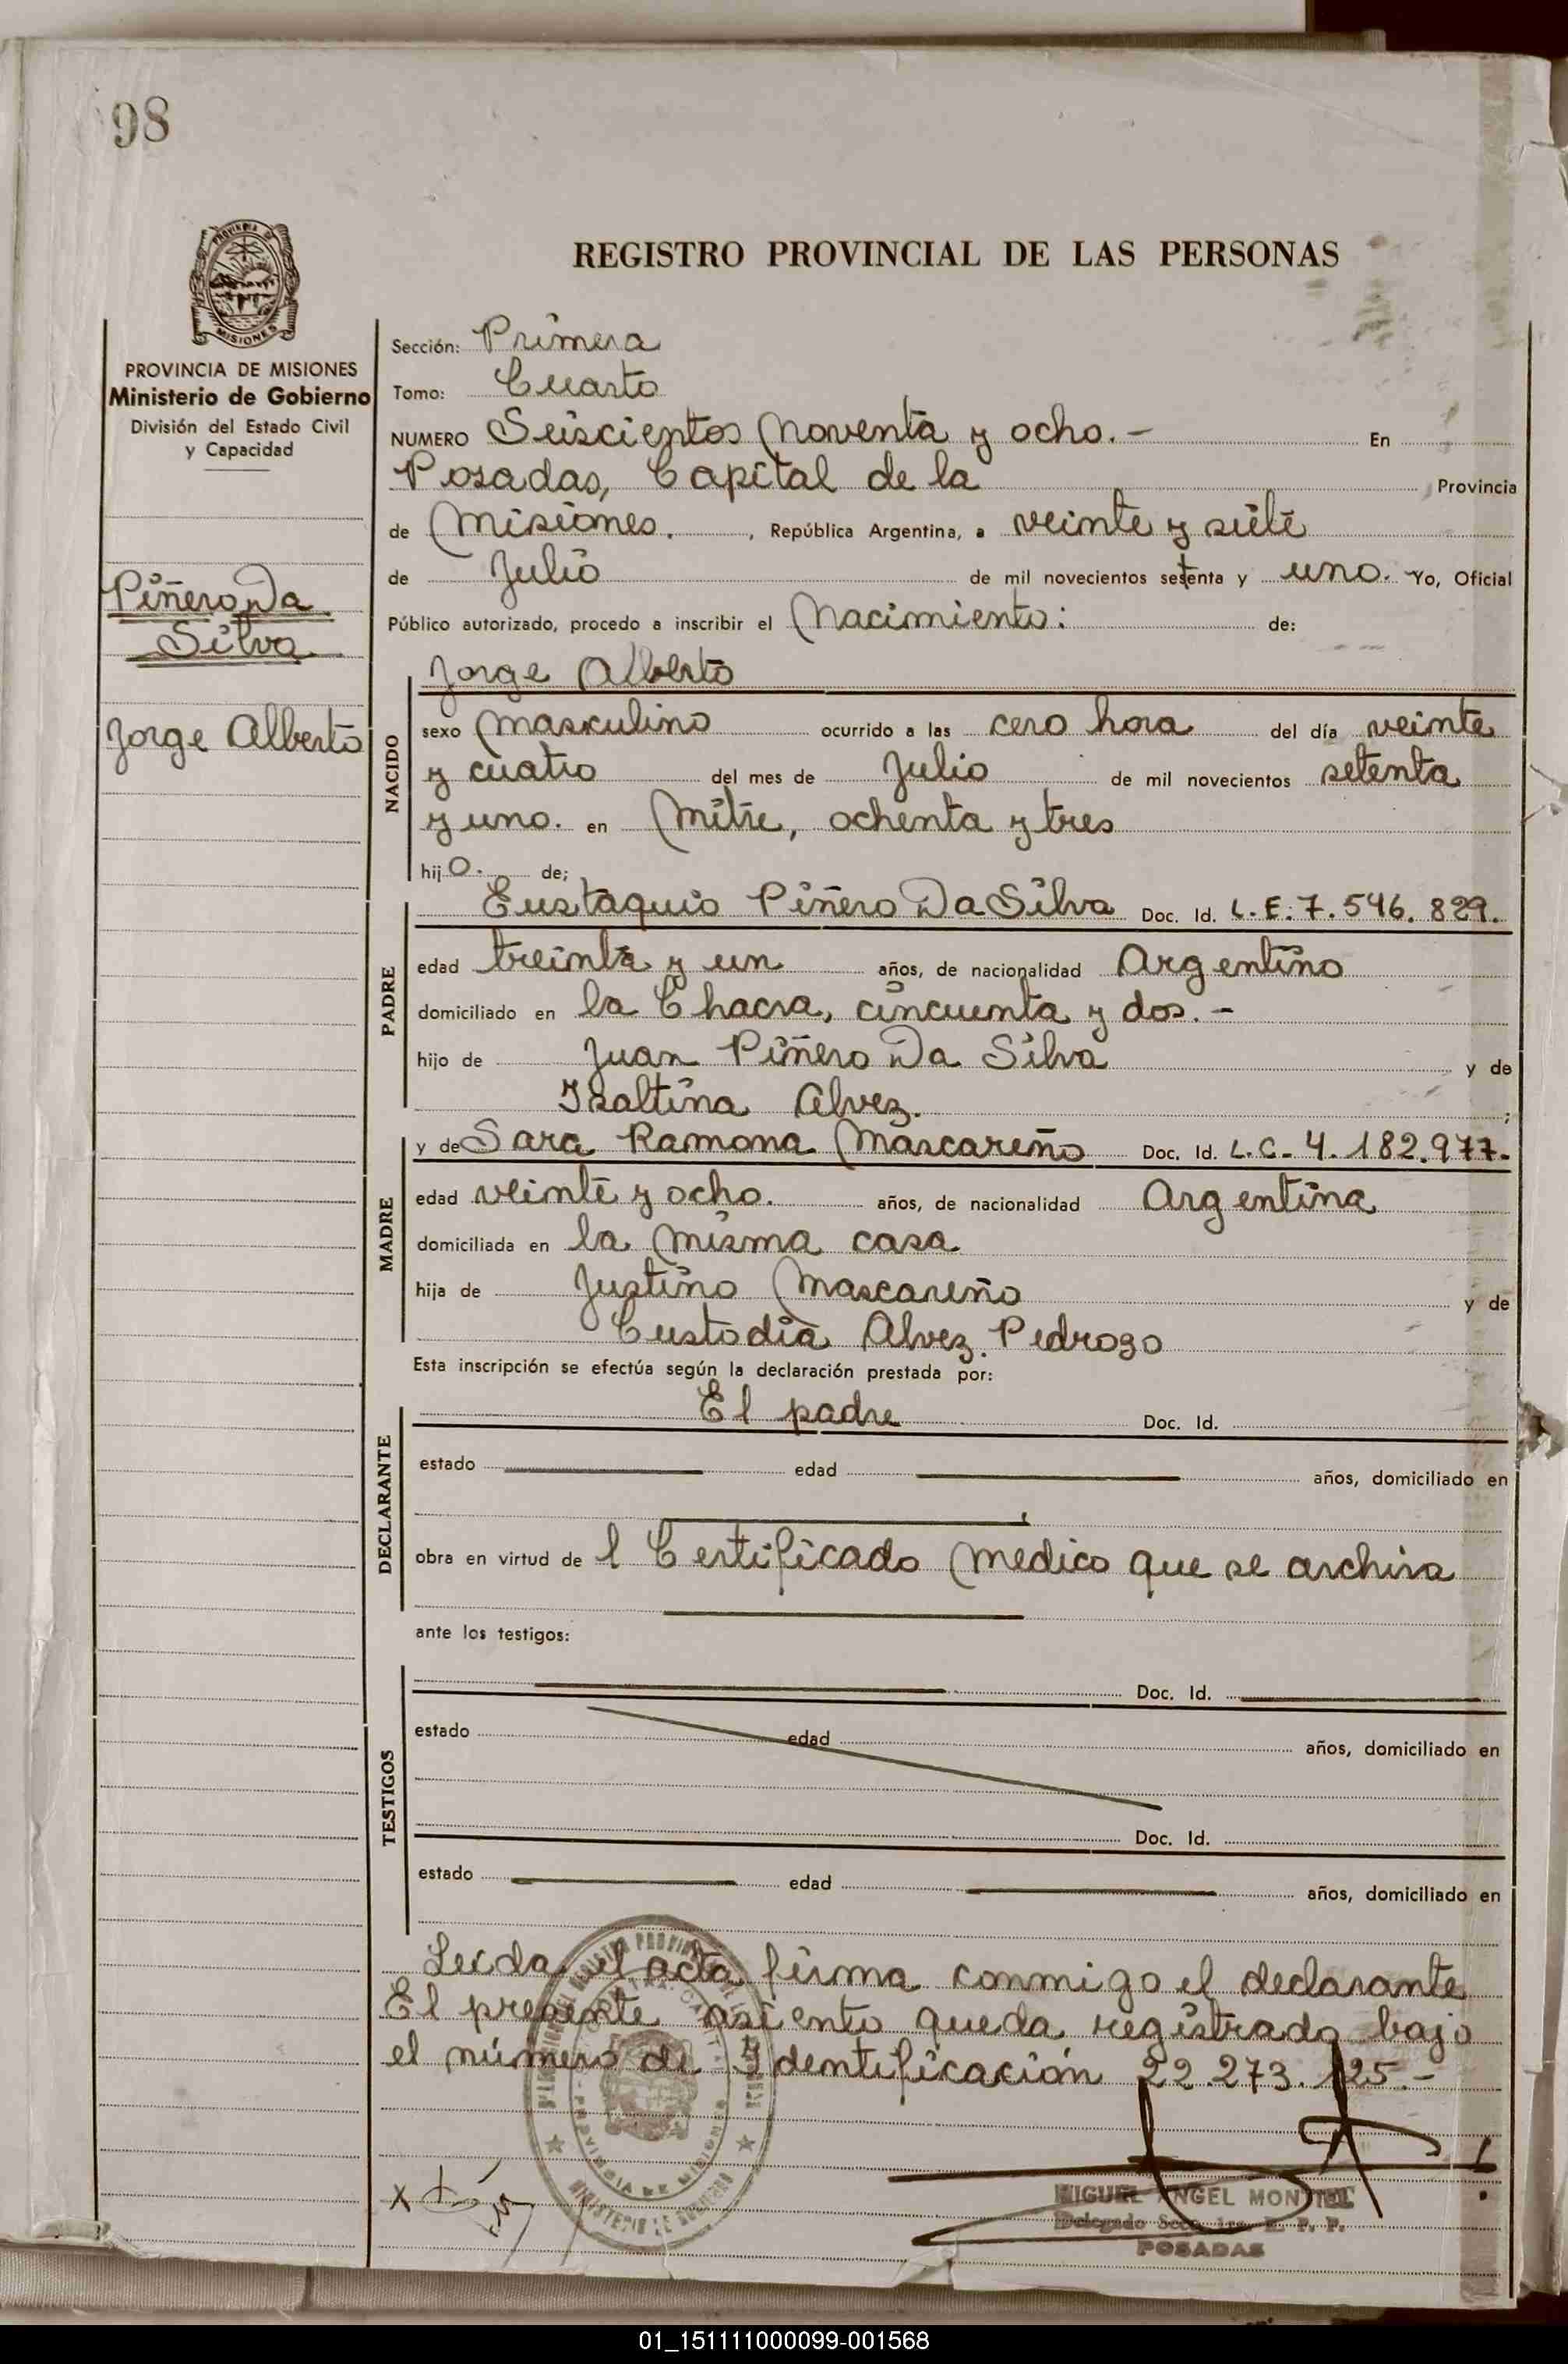 98
REGISTRO PROVINCIAL DE LAS PERSONAS
PROVINCIA DE MISIONES
Ministerio de Gobierno
División del Estado Civil
y Capacidad
Piñero Da
Silva
Jorge Alberto
Sección: Primera
Tomo: Cuarto
NUMERO Seiscientos Noventa y ocho. - En
Posadas, Capital de la Provincia
de Misiones. , República Argentina, a veinte y siete
de Julio de mil novecientos setenta y uno. Yo, Oficial
Público autorizado, procedo a inscribir el Nacimiento: de:
NACIDO
Jorge Alberto
sexo masculino ocurrido a las cero hora del día veinte
y cuatro del mes de Julio de mil novecientos setenta
y uno. en Mitre, ochenta y tres
hij o. de;
PADRE
Eustaquio Piñero Da Silva Doc. Id. L.E: 7.546.829.
edad treinta y un años, de nacionalidad Argentino
domiciliado en la Chacra, cincuenta y dos. -
hijo de Juan Piñero Da Silva y de
Isaltina Alvez. ;
MADRE
y de Sara Ramona Mascareño Doc. Id. L.C. 4.182.977-
edad veinte y ocho. años, de nacionalidad Argentina
domiciliada en la misma casa
hija de Justino Mascareño y de
Custodia Alvez. Pedrozo
Esta inscripción se efectúa según la declaración prestada por:
DECLARANTE
El padre Doc. Id.
estado edad años, domiciliado en
obra en virtud de l Certificado Medico que se archiva
ante los testigos:
TESTIGOS
Doc. Id.
estado edad años, domiciliado en
Doc. Id.
estado edad años, domiciliado en
Leída el acta firma conmigo el declarante
El presente asiento queda registrado bajo
el número de Identificación 22.273.125.-
MIGUEL ANGEL MONTIEL
Delegado Secc. 1ra. R. P. P.
POSADAS
01_151111000099-001568